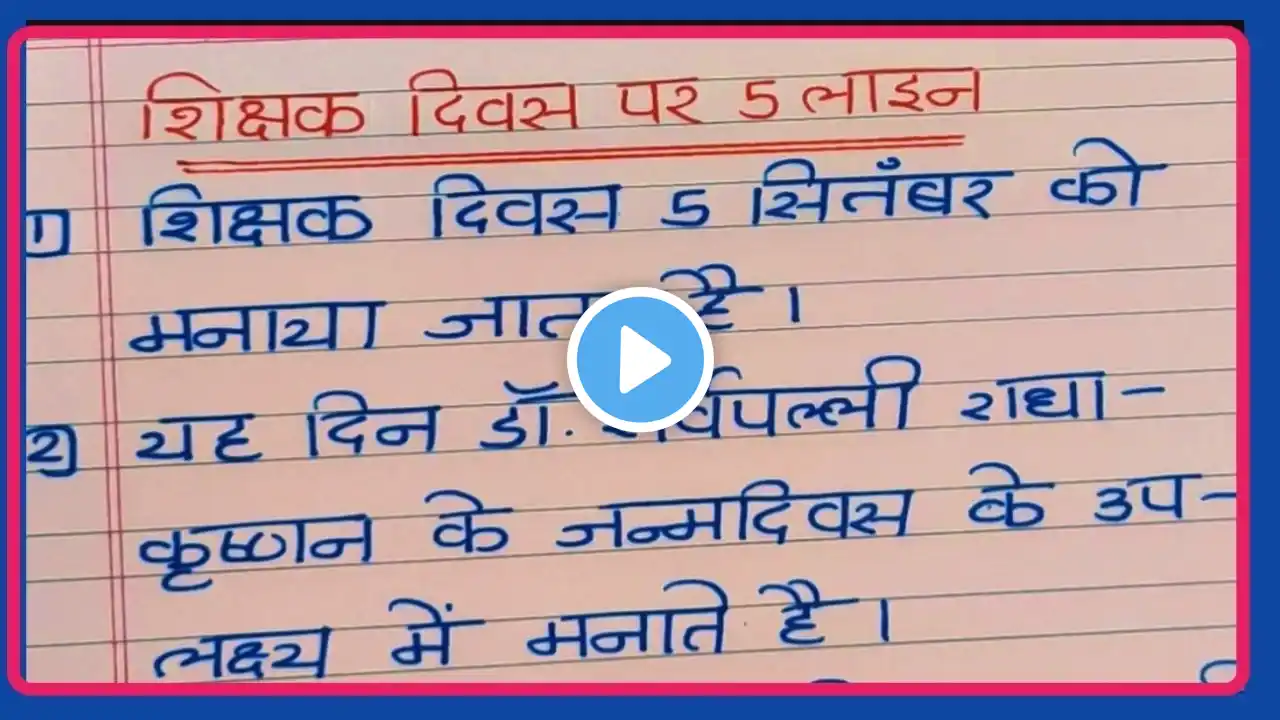 शिक्षक दिवस पर 5 लाइन
1) शिक्षक दिवस 5 सितंबर को
मनाया जाता है ।
2) यह दिन डॉ. सर्वपल्ली राधा-
कृष्णन के जन्मदिवस के उप-
लक्ष्य में मनाते है ।